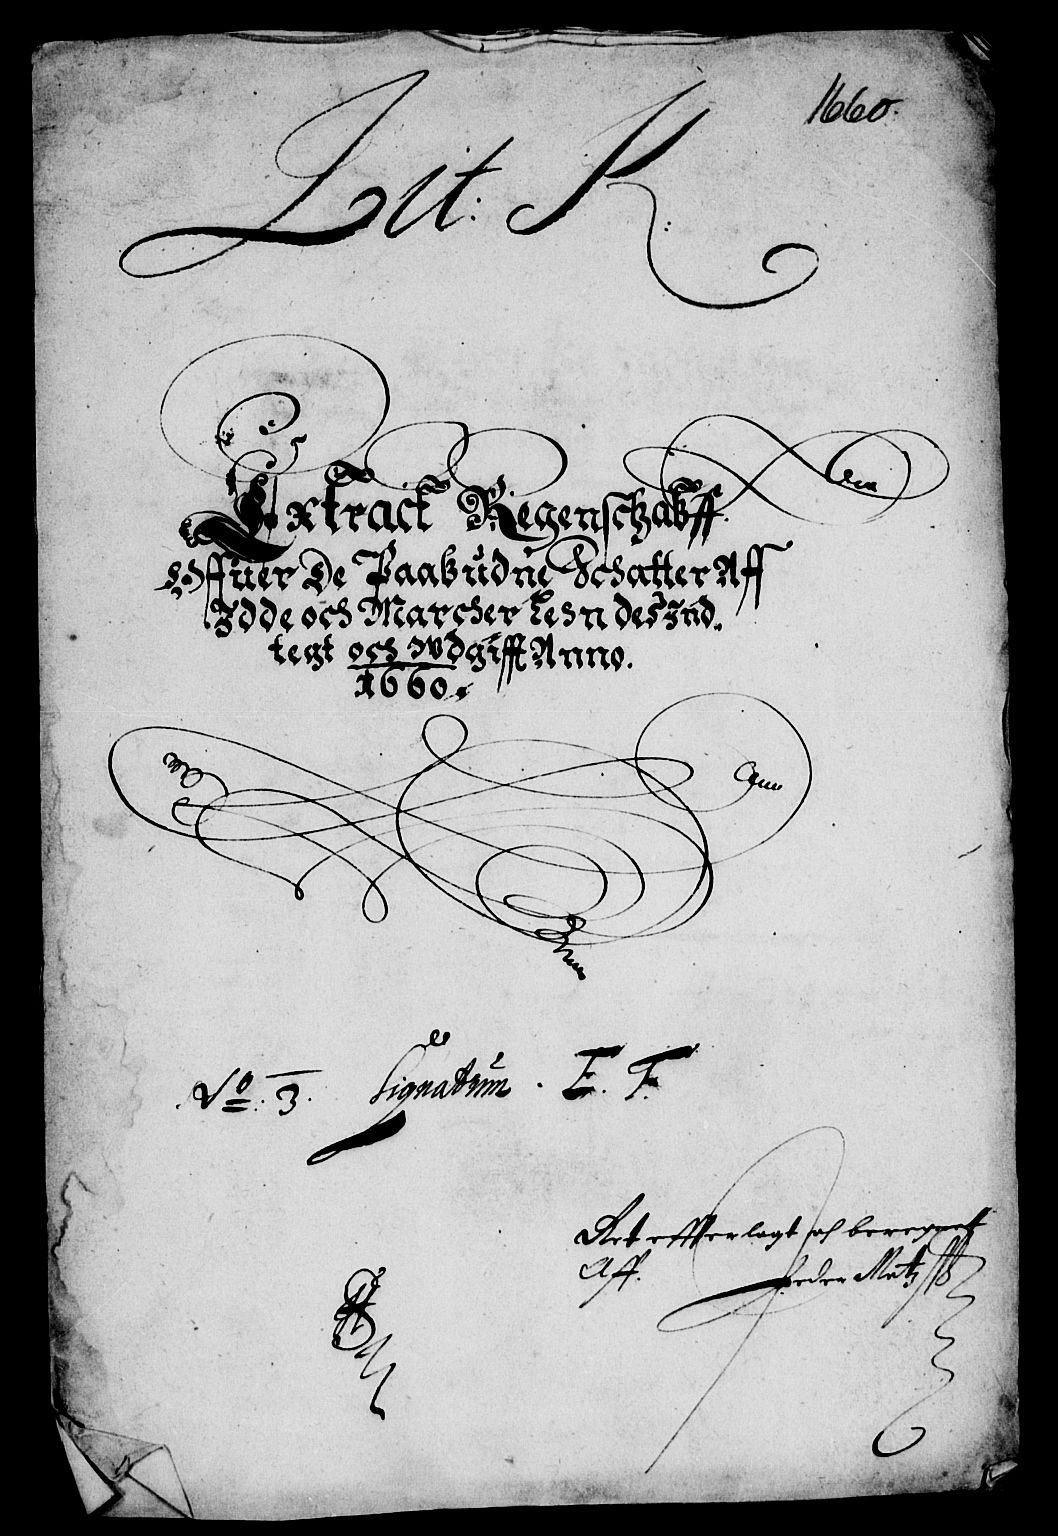 1660.
Lit: K:
Extract Regenschabff
Offuer De Paabudne Schatter Aff
Idde och Marcher Lehn des Ind
tegt och Wdgifft Anno.
1660.
No: 3. Signatum. E. F.
Ret effterlagt och beregnet
Aff. Peder